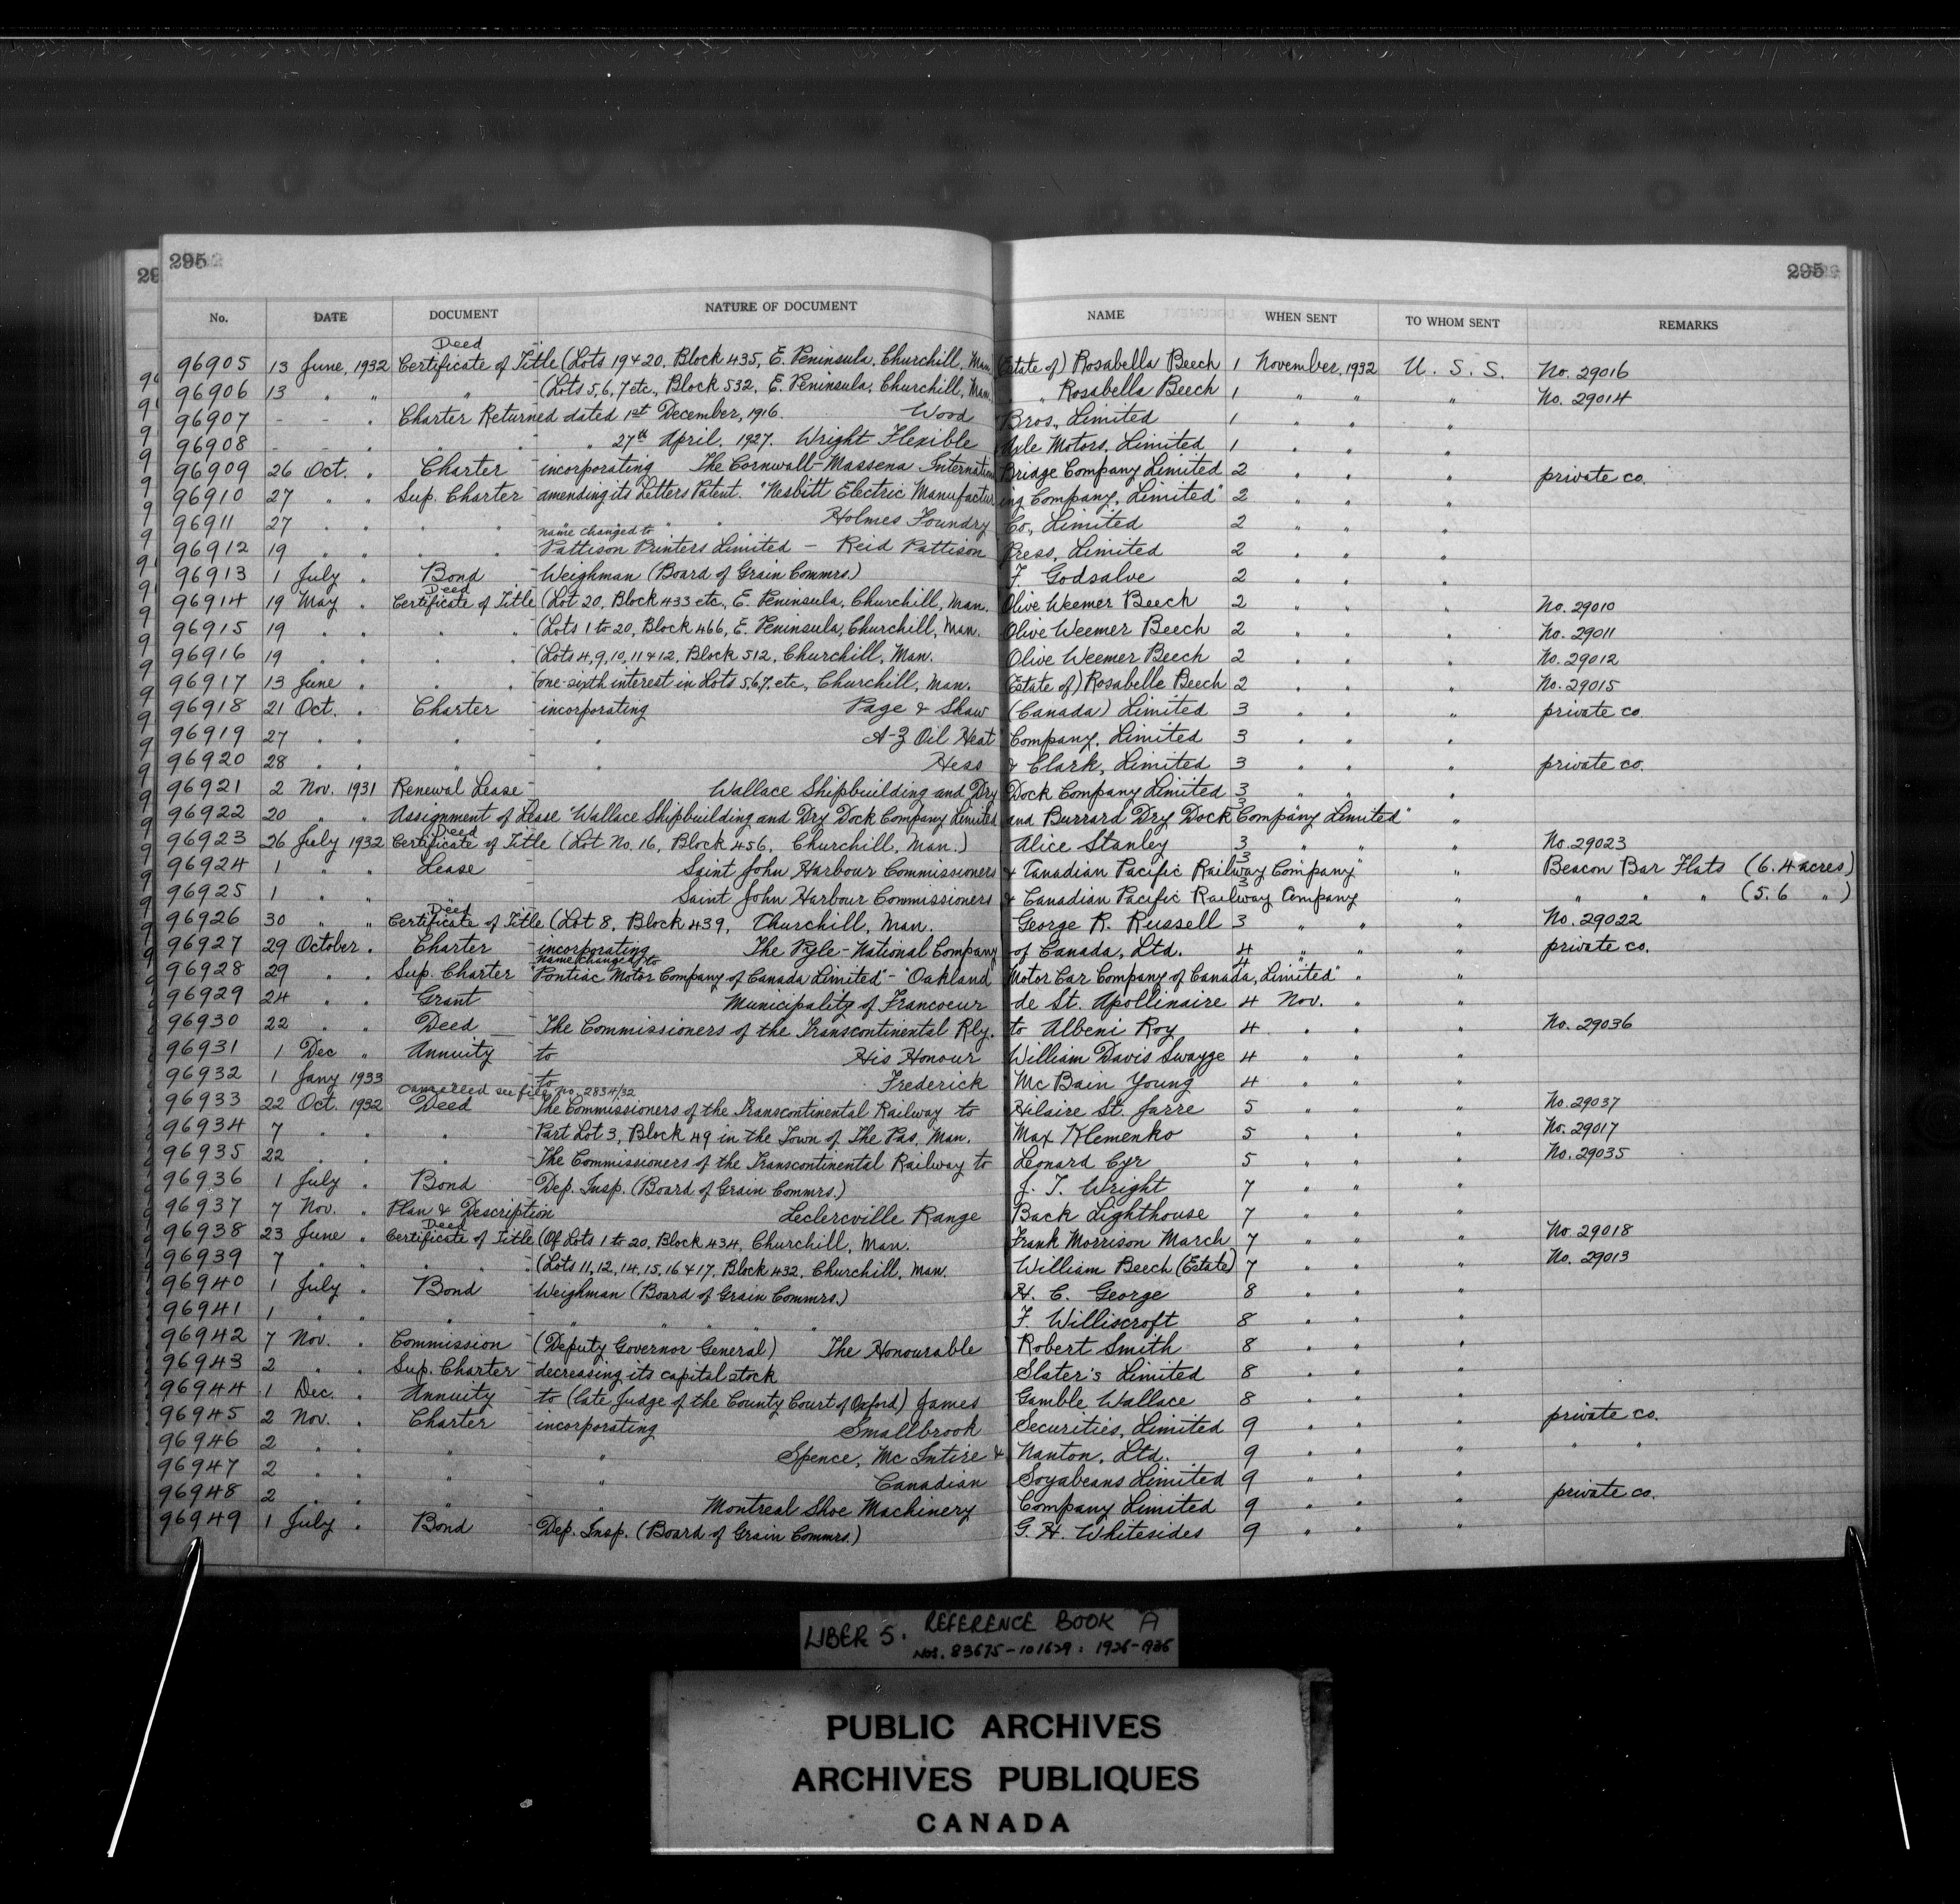 295
295
No. DATE DOCUMENT NATURE OF DOCUMENT NAME WHEN SENT TO WHOM SENT REMARKS
Deed
96905 13 June, 1932 Certificate of Title (Lots 19 & 20, Block 435, E. Peninsula, Churchill, Man. (Estate of) Rosabella Beech 1 November, 1932 U. S. S. No. 29016
96906 13 " " " (Lots 5, 6, 7 etc., Block 532, E. Peninsula, Churchill, Man. " Rosabella Beech 1 " " " No. 29014
96907 - - " Charter Returned dated 1st December, 1916. Wood Bros., Limited 1 " " "
96908 - - " " " " 27th April, 1927. Wright Flexible Axle Motors, Limited 1 " " "
96909 26 Oct. " Charter incorporating The Cornwall-Massena Internation Bridge Company Limited 2 " " " private co.
96910 27 " " Sup. Charter amending its Letters Patent. "Nesbitt Electric Manufactur ing Company, Limited" 2 " " "
96911 27 " " " " " " Holmes Foundry Co., Limited 2 " " "
name changed to
96912 19 " " " " Pattison Printers Limited - Reid Pattison Press, Limited 2 " " "
96913 1 July " Bond Weighman (Board of Grain Commrs.) F. Godsalve 2 " " "
Deed
96914 19 May " Certificate of Title (Lot 20, Block 433 etc., E. Peninsula, Churchill, Man. Olive Weemer Beech 2 " " " No. 29010
96915 19 " " " " (Lots 1 to 20, Block 466, E. Peninsula, Churchill, Man. Olive Weemer Beech 2 " " " No. 29011
96916 19 " " " " (Lots 4, 9, 10, 11 & 12, Block 512, Churchill, Man. Olive Weemer Beech 2 " " " No. 29012
96917 13 June " " " (one-sixth interest in Lots 5, 6, 7, etc, Churchill, Man. (Estate of) Rosabelle Beech 2 " " " No. 29015
96918 21 Oct. " Charter incorporating Page & Shaw (Canada) Limited 3 " " " private co.
96919 27 " " " " A-Z Oil Heat Company, Limited 3 " " "
96920 28 " " " " Hess & Clark, Limited 3 " " " private co.
96921 2 Nov. 1931 Renewal Lease Wallace Shipbuilding and Dry Dock Company Limited 3 " " "
96922 20 " " Assignment of Lease "Wallace Shipbuilding and Dry Dock Company Limited and Burrard Dry Dock Company Limited" 3 " " "
Deed
96923 26 July 1932 Certificate of Title (Lot No. 16, Block 456, Churchill, Man.) Alice Stanley 3 " " " No. 29023
96924 1 " " Lease Saint John Harbour Commissioners & Canadian Pacific Railway Company 3 " " Beacon Bar Flats (6.4 acres)
96925 1 " " " Saint John Harbour Commissioners & Canadian Pacific Railway Company 3 " " " " (5.6 ")
Deed
96926 30 " " Certificate of Title (Lot 8, Block 439, Churchill, Man. George R. Russell 3 " " " No. 29022
96927 29 October " Charter incorporating The Pyle-National Company of Canada, Ltd. 4 " " " private co.
name changed to
96928 29 " " Sup. Charter "Pontiac Motor Company of Canada Limited" - "Oakland Motor Car Company of Canada, Limited" 4 " "
96929 24 " " Grant Municipality of Francoeur de St. Apollinaire 4 Nov. " "
96930 22 " " Deed The Commissioners of the Transcontinental Rly. to Albeni Roy 4 " " " No. 29036
96931 1 Dec " Annuity to His Honour William Davis Swayze 4 " " "
96932 1 Jany 1933 " to Frederick McBain Young 4 " " "
Cancelled see file no. 2834/32
96933 22 Oct. 1932 Deed The Commissioners of the Transcontinental Railway to Hilaire St. Jarre 5 " " " No. 29037
96934 7 " " " Part Lot 3, Block 49 in the Town of The Pas, Man. Max Klemenko 5 " " " No. 29017
96935 22 " " " The Commissioners of the Transcontinental Railway to Leonard Cyr 5 " " " No. 29035
96936 1 July " Bond Dep. Insp. (Board of Grain Commrs.) J. T. Wright 7 " " "
96937 7 Nov. " Plan & Description Leclercville Range Back Lighthouse 7 " " "
Deed
96938 23 June " Certificate of Title (Of Lots 1 to 20, Block 434, Churchill, Man. Frank Morrison March 7 " " " No. 29018
96939 7 " " " " (Lots 11, 12, 14, 15, 16 & 17, Block 432, Churchill, Man. William Beech (Estate) 7 " " " No. 29013
96940 1 July " Bond Weighman (Board of Grain Commrs.) H. C. George 8 " " "
96941 1 " " " " " " " " F. Williscroft 8 " " "
96942 7 Nov. " Commission (Deputy Governor General) The Honourable Robert Smith 8 " " "
96943 2 " " Sup. Charter decreasing its capital stock Slater's Limited 8 " " "
96944 1 Dec. " Annuity to (late Judge of the County Court of Oxford) James Gamble Wallace 8 " " "
96945 2 Nov. " Charter incorporating Smallbrook Securities, Limited 9 " " " private co.
96946 2 " " " " Spence, McIntire & Nanton, Ltd. 9 " " " " "
96947 2 " " " " Canadian Soyabeans Limited 9 " " "
96948 2 " " " " Montreal Shoe Machinery Company Limited 9 " " " private co.
96949 1 July " Bond Dep. Insp. (Board of Grain Commrs.) G. H. Whitesides 9 " " "
LIBER 5. REFERENCE BOOK A
NOS. 83675-101629: 1926-1936
PUBLIC ARCHIVES
ARCHIVES PUBLIQUES
CANADA